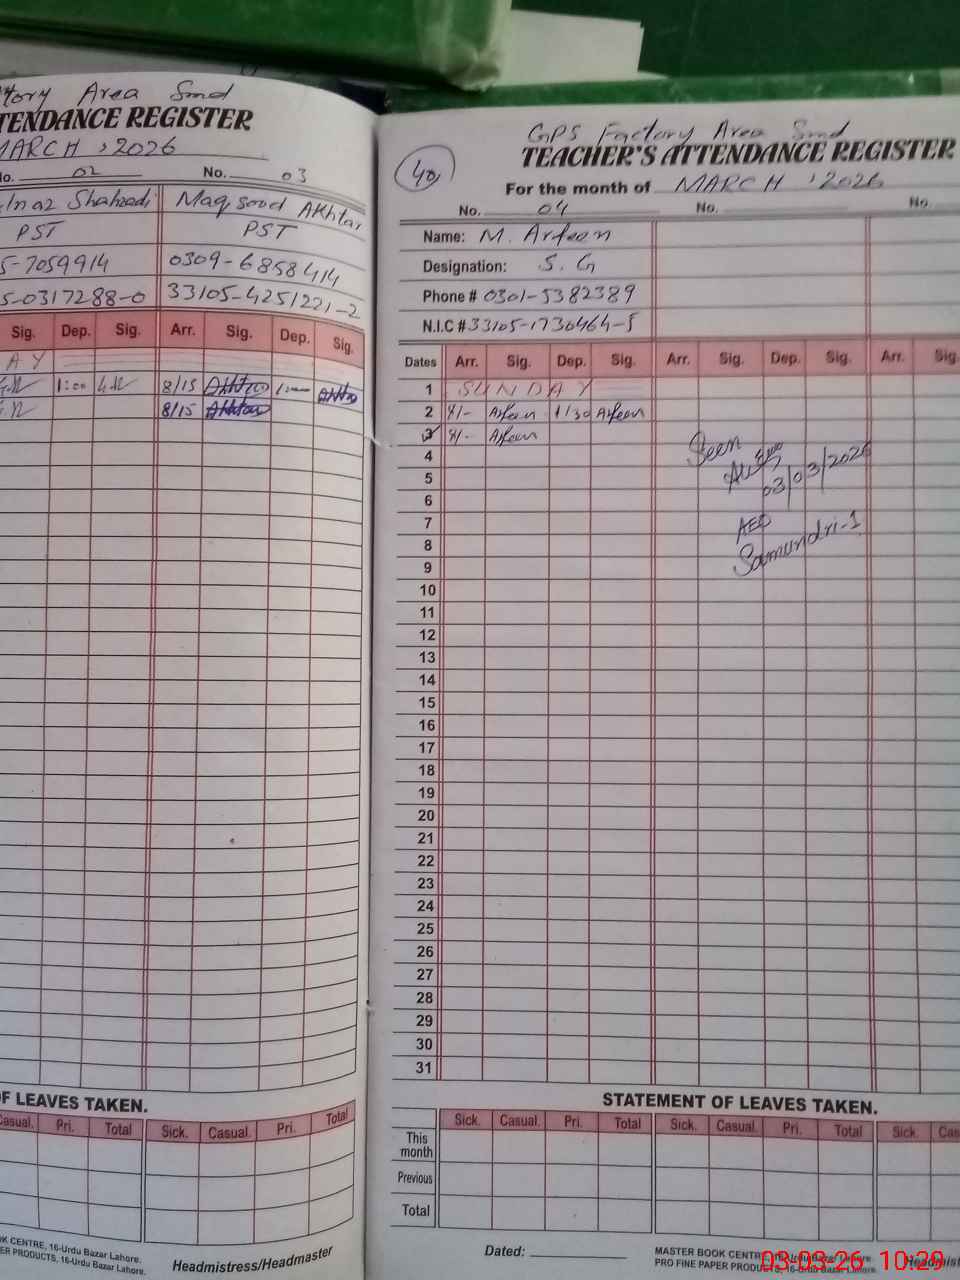 tory Area Smd
TENDANCE REGISTER
MARCH, 2026
No. 02 No. 03
lnaz Shahzadi Maqsood Akhtar
PST PST
5-7059914 0309-6858414
5-0317288-0 33105-4251221-2
Sig. Dep. Sig. Arr. Sig. Dep. Sig.
A Y
1:00 8/15 1:00
8/15
OF LEAVES TAKEN.
Casual. Pri. Total Sick. Casual. Pri. Total
OK CENTRE, 16-Urdu Bazar Lahore.
ER PRODUCTS, 16-Urdu Bazar Lahore.
Headmistress/Headmaster
GPS Factory Area Smd
40
TEACHER'S ATTENDANCE REGISTER
For the month of MARCH, 2026
No. 04 No. No.
Name: M. Arfeen
Designation: S. G
Phone # 0301-5382389
N.I.C # 33105-1730464-5
Dates Arr. Sig. Dep. Sig. Arr. Sig. Dep. Sig. Arr. Sig.
1 SUNDAY
2 8/- Arfeen 1/30 Arfeen
3 8/- Arfeen
4 Seen
5 03/03/2026
6
7 AEO
8 Samundri-1
9
10
11
12
13
14
15
16
17
18
19
20
21
22
23
24
25
26
27
28
29
30
31
STATEMENT OF LEAVES TAKEN.
Sick. Casual. Pri. Total Sick. Casual. Pri. Total Sick. Cas
This month
Previous
Total
Dated:
MASTER BOOK CENTRE, 16-Urdu Bazar Lahore.
PRO FINE PAPER PRODUCTS, 16-Urdu Bazar Lahore.
Headmist
03-03-26 10:29